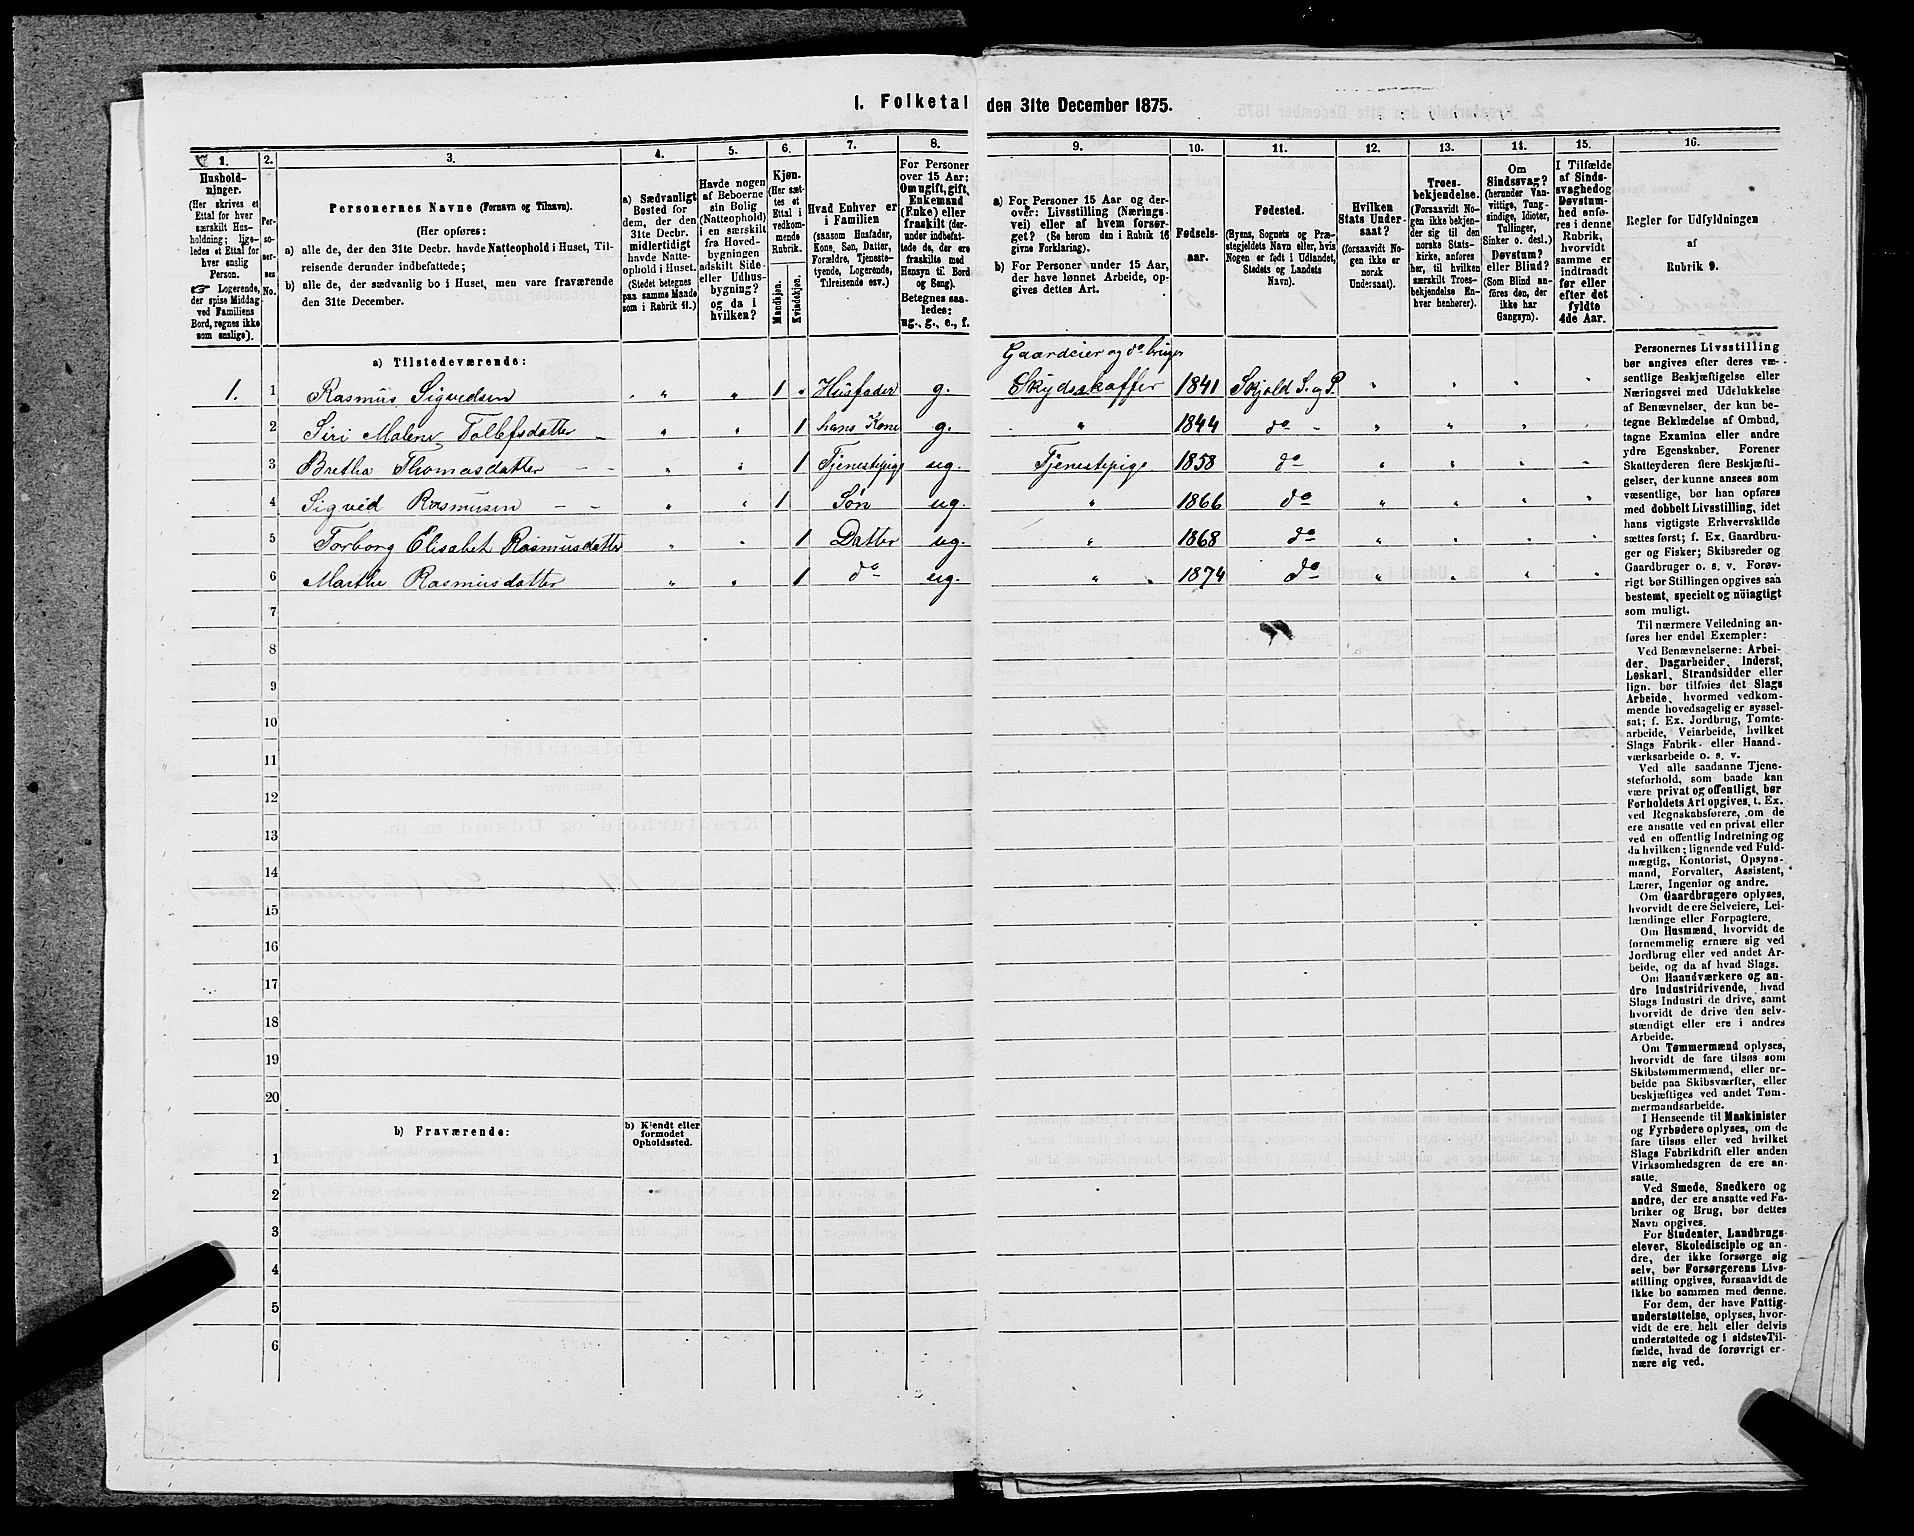 1. Folketal den 31te December 1875.
1. 2. 3. 4. 5. 6. 7. 8. 9. 10. 11. 12. 13. 14. 15. 16.
Hushold-
ninger.
(Her skrives et
Ettal for hver
særskilt Hus-
holdning; lige-
ledes et Ettal for
hver enslig
Person.
☞ Logerende,
der spise Middag
ved Familiens
Bord, regnes ikke
som enslige).
Per-
so-
ner-
nes
No.
Personernes Navne (Fornavn og Tilnavn).
(Her opføres:
a) alle de, der den 31te Decbr. havde Natteophold i Huset, Til-
reisende derunder indbefattede;
b) alle de, der sædvanlig bo i Huset, men vare fraværende
den 31te December.
a) Sædvanligt
Bosted for
dem, der den
31te Decbr.
midlertidigt
havde Natte-
ophold i Huset.
(Stedet betegnes
paa samme Maade
som i Rubrik 11.)
Havde nogen
af Beboerne
sin Bolig
(Natteophold)
i en særskilt
fra Hoved-
bygningen
adskilt Side-
eller Udhus-
bygning?
og da i
hvilken?
Kjøn.
(Her sæt-
tes et
Ettal i
vedkom-
mende
Rubrik.
Mandkjøn.
Kvindekjøn.
Hvad Enhver er
i Familien
(saasom Husfader,
Kone, Søn, Datter,
Forældre, Tjeneste-
tyende, Logerende,
Tilreisende osv.)
For Personer
over 15 Aar:
Om ugift, gift,
Enkemand
(Enke) eller
fraskilt (der-
under indbefat-
tede de, der ere
fraskilte med
Hensyn til Bord
og Seng).
Betegnes saa-
ledes:
ug., g., e., f.
a) For Personer 15 Aar og der-
over: Livsstilling (Nærings-
vei) eller af hvem forsør-
get? (Se herom den i Rubrik 16
givne Forklaring).
b) For Personer under 15 Aar,
der have lønnet Arbeide, op-
gives dettes Art.
Fødsels-
aar.
Fødested.
(Byens, Sognets og Præ-
stegjeldets Navn eller, hvis
Nogen er født i Udlandet,
Stedets og Landets
Navn).
Hvilken
Stats Under-
saat?
(forsaavidt No-
gen ikke er
norsk
Undersaat).
Troes-
bekjendelse.
(Forsaavidt No-
gen ikke bekjen-
der sig til den
norske Stats-
kirke, anføres
her, til hvilken
særskilt Troes-
bekjendelse En-
hver henhører).
Om
Sindssvag?
(herunder Van-
vittige, Tung-
sindige, Idioter,
Tullinger,
Sinker o. desl.)
Døvstum?
eller Blind?
(Som Blind an-
føres den, der
ikke har
Gangsyn).
I Tilfælde
af Sinds-
svaghed og
Døvstum-
hed anfø-
res i denne
Rubrik,
hvorvidt
samme er
indtraadt
før eller
efter det
fyldte
4de Aar.
Regler for Udfyldningen
af
Rubrik 9.
a) Tilstedeværende:
Gaardeier og do bruger
1. 1 Rasmus Sigvedsen " " 1 " Husfader g. Skydsskaffer 1841 Skjold S. og P. " " " "
2 Siri Malene Tollefsdatter " " 1 hans Kone g. " 1844 do " " " "
3 Bretha Thomasdatter " " 1 Tjenestepige ug. Tjenestepige 1858 do " " " "
4 Sigved Rasmusen " " 1 Søn ug. " 1866 do " " " "
5 Torborg Elisabet Rasmusdatter " " 1 Datter ug. " 1868 do " " " "
6 Marthe Rasmusdatter " " 1 do ug. " 1874 do " " " "
7
8
9
10
11
12
13
14
15
16
17
18
19
20
b) Fraværende:
b) Kjendt eller
formodet
Opholdssted.
1
2
3
4
5
6
Personernes Livsstilling
bør angives efter deres væ-
sentlige Beskjæftigelse eller
Næringsvei med Udelukkelse
af Benævnelser, der kun be-
tegne Beklædelse af Ombud,
tagne Examina eller andre
ydre Egenskaber. Forener
Skatteyderen flere Beskjæfti-
gelser, der kunne ansees som
væsentlige, bør han opføres
med dobbelt Livsstilling, idet
hans vigtigste Erhvervskilde
sættes først; f. Ex. Gaardbru-
ger og Fisker; Skibsreder og
Gaardbruger o. s. v. Forøv-
rigt bør Stillingen opgives saa
bestemt, specielt og nöiagtigt
som muligt.
Til nærmere Veiledning an-
føres her endel Exempler:
Ved Benævnelserne: Arbei-
der, Dagarbeider, Inderst,
Løskarl, Strandsidder eller
lign. bør tilføies det Slags
Arbeide, hvormed vedkom-
mende hovedsagelig er syssel-
sat; f. Ex. Jordbrug, Tomte-
arbeide, Veiarbeide, hvilket
Slags Fabrik- eller Haand-
værksarbeide o. s. v.
Ved alle saadanne Tjene-
steforhold, som baade kan
være privat og offentligt, bør
Forholdets Art opgives, t. Ex.
ved Regnskabsførere, om de
ere ansatte ved en privat eller
ved en offentlig Indretning og
da hvilken; lignende ved Fuld-
mægtig, Kontorist, Opsyns-
mand, Forvalter, Assistent,
Lærer, Ingeniør og andre.
Om Gaardbrugere oplyses,
hvorvidt de ere Selveiere, Lei-
lændinge eller Forpagtere.
Om Husmænd, hvorvidt de
fornemmelig ernære sig ved
Jordbrug eller ved andet Ar-
beide, og da af hvad Slags.
Om Haandværkere og an-
dre Industridrivende, hvad
Slags Industri de drive, samt
hvorvidt de drive den selv-
stændigt eller ere i andres
Arbeide.
Om Tømmermænd oplyses,
hvorvidt de fare tilsøs som
Skibstømmermænd, eller ar-
beide paa Skibsværfter, eller
beskjæftiges ved andet Tøm-
mermandsarbeide.
I Henseende til Maskinister
og Fyrbødere oplyses, om de
fare tilsøs eller ved hvilket
Slags Fabrikdrift eller anden
Virksomhedsgren de ere an-
satte.
Ved Smede, Snedkere og
andre, der ere ansatte ved Fa-
briker og Brug, bør dettes
Navn opgives.
For Studenter, Landbrugs-
elever, Skoledisciple og an-
dre, der ikke forsørge sig
selv, bør Forsørgerens Livs-
stilling opgives, forsaavidt de
ikke bo sammen med denne.
For dem, der have Fattig-
understøttelse, oplyses, hvor-
vidt de ere helt eller delvis
understøttede og i sidste Til-
fælde, hvad de forøvrigt er-
nære sig ved.